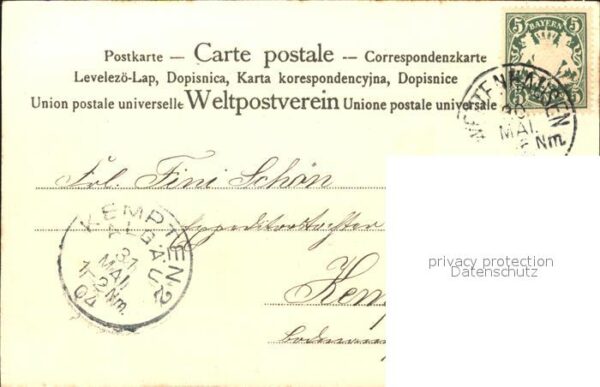 5 BAYERN 5
Postkarte — Carte postale — Correspondenzkarte
Levelezö-Lap, Dopisnica, Karta korespondencyjna, Dopisnice
Union postale universelle Weltpostverein Unione postale universale
30
MAI.
Nm.
Frl. Fini Schön
Expeditorstochter
Kemp
KEMPTEN 2
ALLGÄU
31
MAI
1-2 Nm.
04
privacy protection
Datenschutz